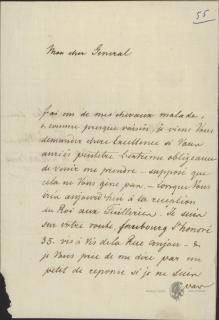 55
Mon cher General
J'ai un de mes chevaux malade,
& comme presque voisin, je viens Vous
demander chere Excellence si Vous
auriez peutetre l'extrème obligeance
de venir me prendre – supposé que
cela ne Vous gène pas – lorsque Vous
irez aujourd'hui à la reception
du Roi aux Tuilleries. Je suis
sur votre route, faubourg St honoré
35. vis à vis de la Rue anjou – &
je Vous prie de me dire par un
petit de reponse si je ne suis
pas